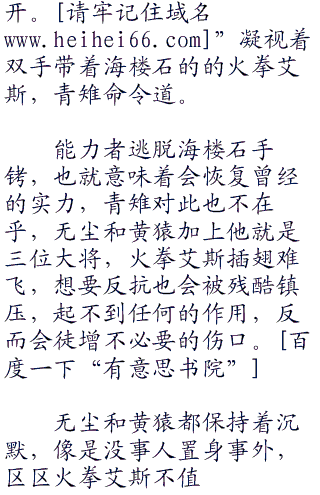 开。[请牢记住域名
www.heihei66.com]”凝视着
双手带着海楼石的的火拳艾
斯，青雉命令道。
能力者逃脱海楼石手
铐，也就意味着会恢复曾经
的实力，青雉对此也不在
乎，无尘和黄猿加上他就是
三位大将，火拳艾斯插翅难
飞，想要反抗也会被残酷镇
压，起不到任何的作用，反
而会徒增不必要的伤口。[百
度一下“有意思书院”]
无尘和黄猿都保持着沉
默，像是没事人置身事外，
区区火拳艾斯不值